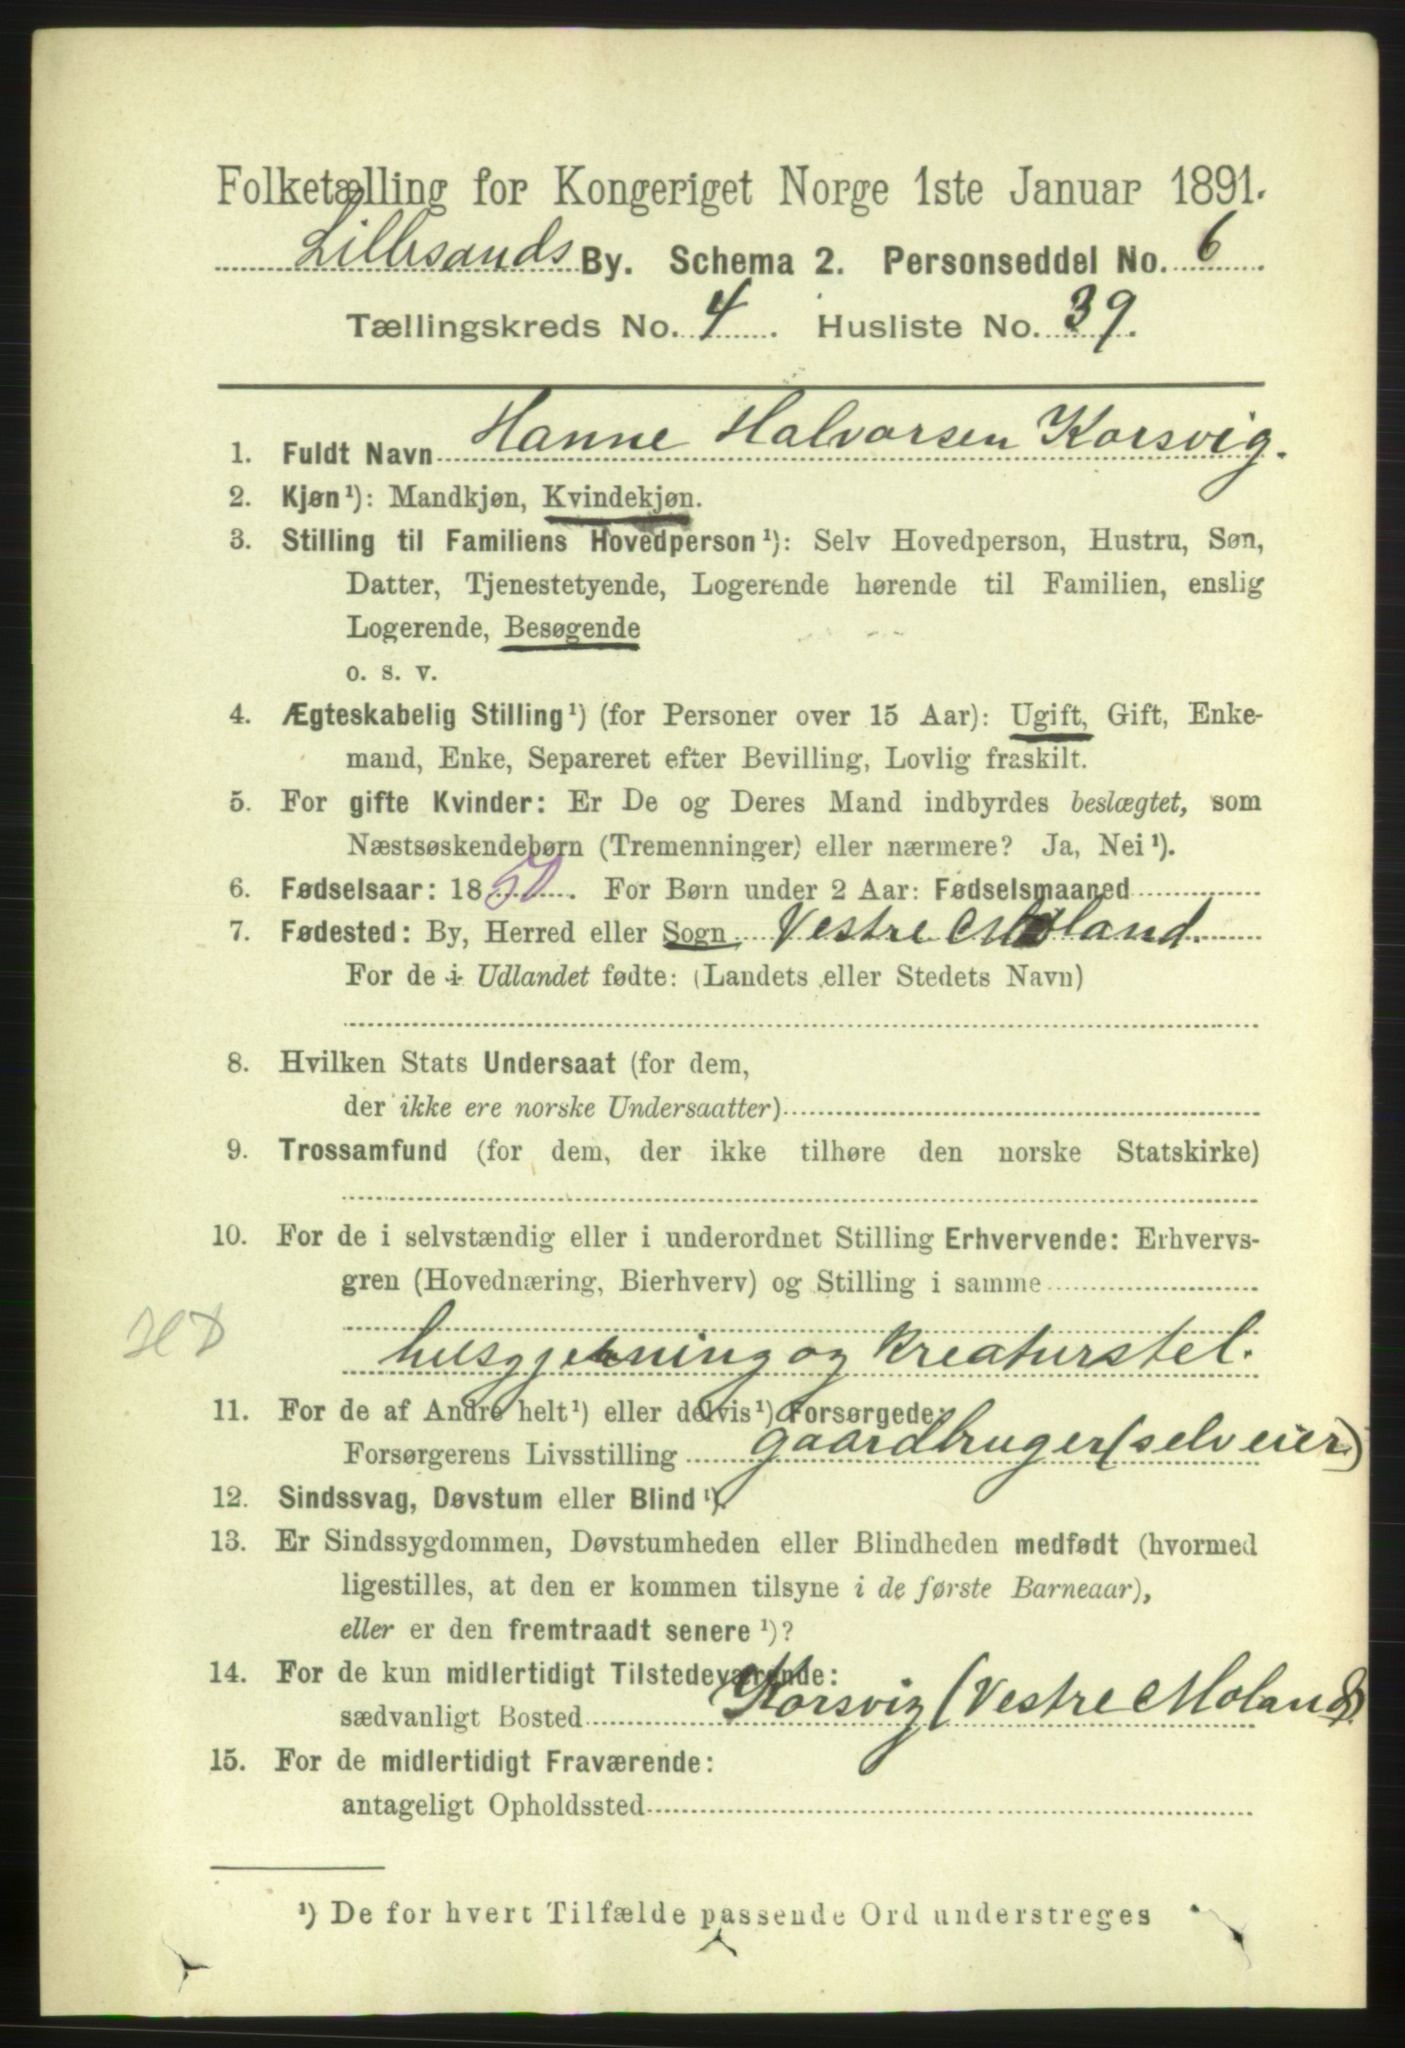 Folketælling for Kongeriget Norge 1ste Januar 1891.
Lillesands By. Schema 2. Personseddel No. 6
Tællingskreds No. 4. Husliste No. 39.
1. Fuldt Navn Hanne Halvorsen Korsvig.
2. Kjøn¹): Mandkjøn, Kvindekjøn.
3. Stilling til Familiens Hovedperson¹): Selv Hovedperson, Hustru, Søn,
Datter, Tjenestetyende, Logerende hørende til Familien, enslig
Logerende, Besøgende
o. s. v.
4. Ægteskabelig Stilling¹) (for Personer over 15 Aar): Ugift, Gift, Enke-
mand, Enke, Separeret efter Bevilling, Lovlig fraskilt.
5. For gifte Kvinder: Er De og Deres Mand indbyrdes beslægtet, som
Næstsøskendebørn (Tremenninger) eller nærmere? Ja, Nei¹).
6. Fødselsaar: 1850. For Børn under 2 Aar: Fødselsmaaned
7. Fødested: By, Herred eller Sogn Vestre Moland.
For de i Udlandet fødte: (Landets eller Stedets Navn)
8. Hvilken Stats Undersaat (for dem,
der ikke ere norske Undersaatter)
9. Trossamfund (for dem, der ikke tilhøre den norske Statskirke)
10. For de i selvstændig eller i underordnet Stilling Erhvervende: Erhvervs-
gren (Hovednæring, Bierhverv) og Stilling i samme
HD
husgjerning og Kreaturstel.
11. For de af Andre helt¹) eller delvis¹) Forsørgede:
Forsørgerens Livsstilling gaardbruger (selveier)
12. Sindssvag, Døvstum eller Blind¹).
13. Er Sindssygdommen, Døvstumheden eller Blindheden medfødt (hvormed
ligestilles, at den er kommen tilsyne i de første Barneaar),
eller er den fremtraadt senere¹)?
14. For de kun midlertidigt Tilstedeværende:
sædvanligt Bosted Korsvig (Vestre Moland)
15. For de midlertidigt Fraværende:
antageligt Opholdssted
¹) De for hvert Tilfælde passende Ord understreges